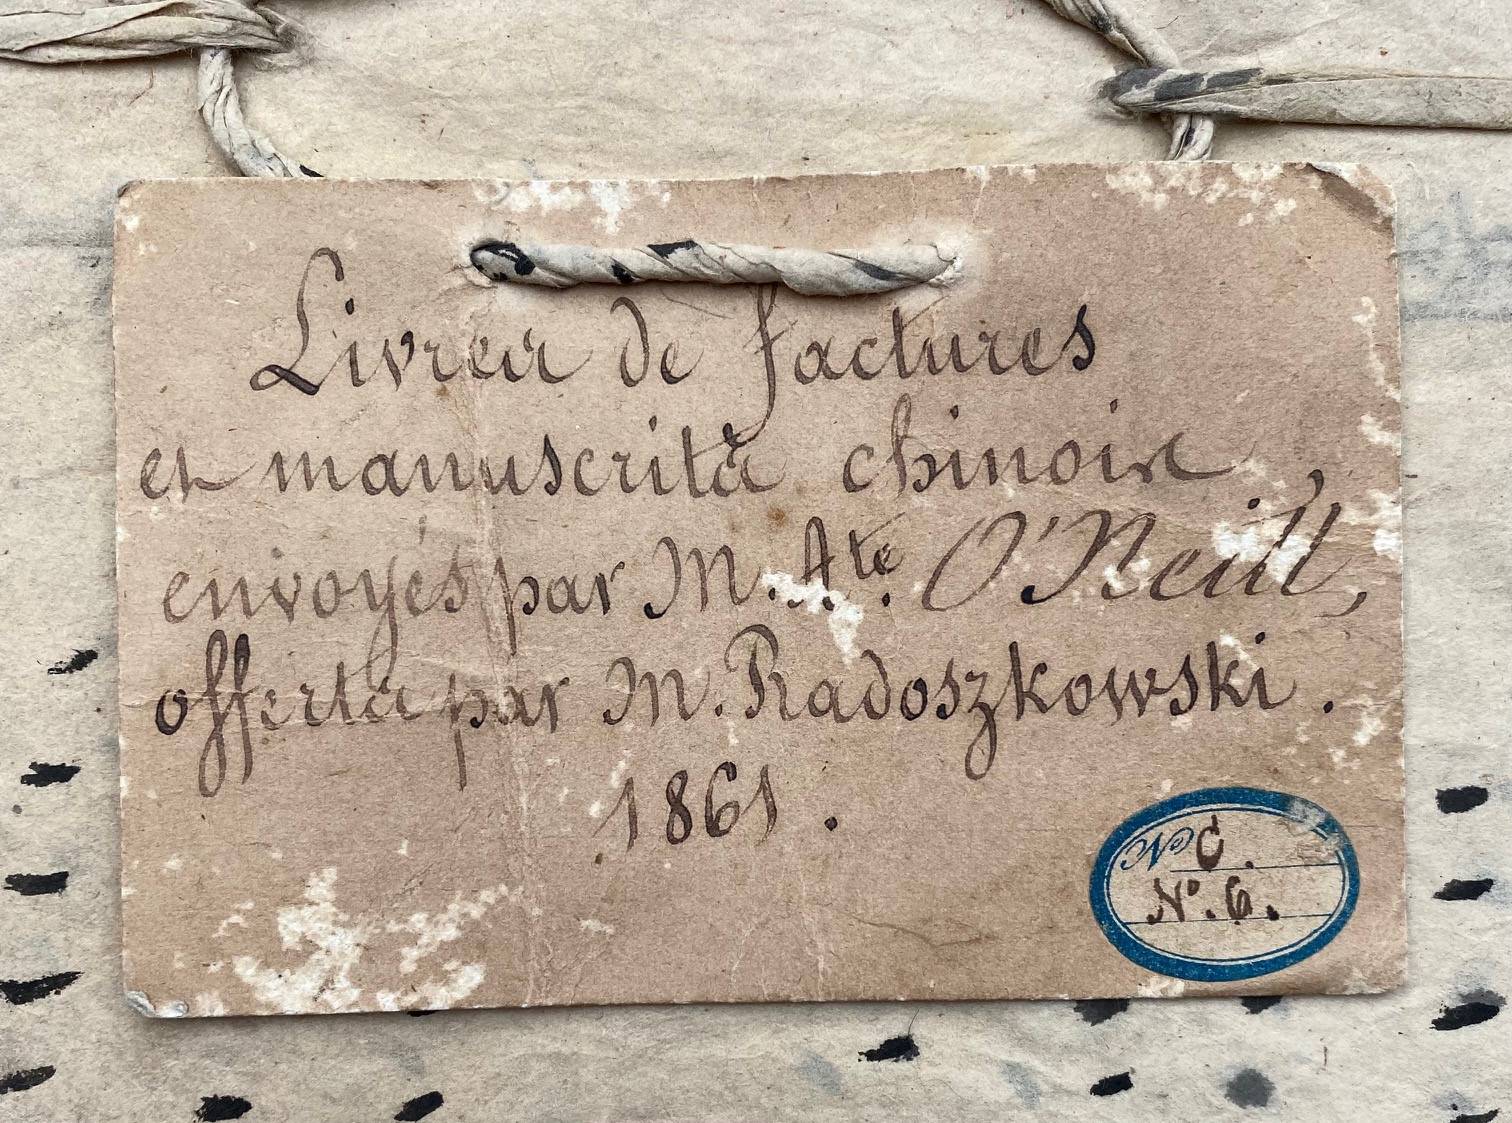 Livres de factures
et manuscrits chinois,
envoyés par M. Ate. O'Neill,
offerts par M. Radoszkowski.
1861.
No C.
No. 6.